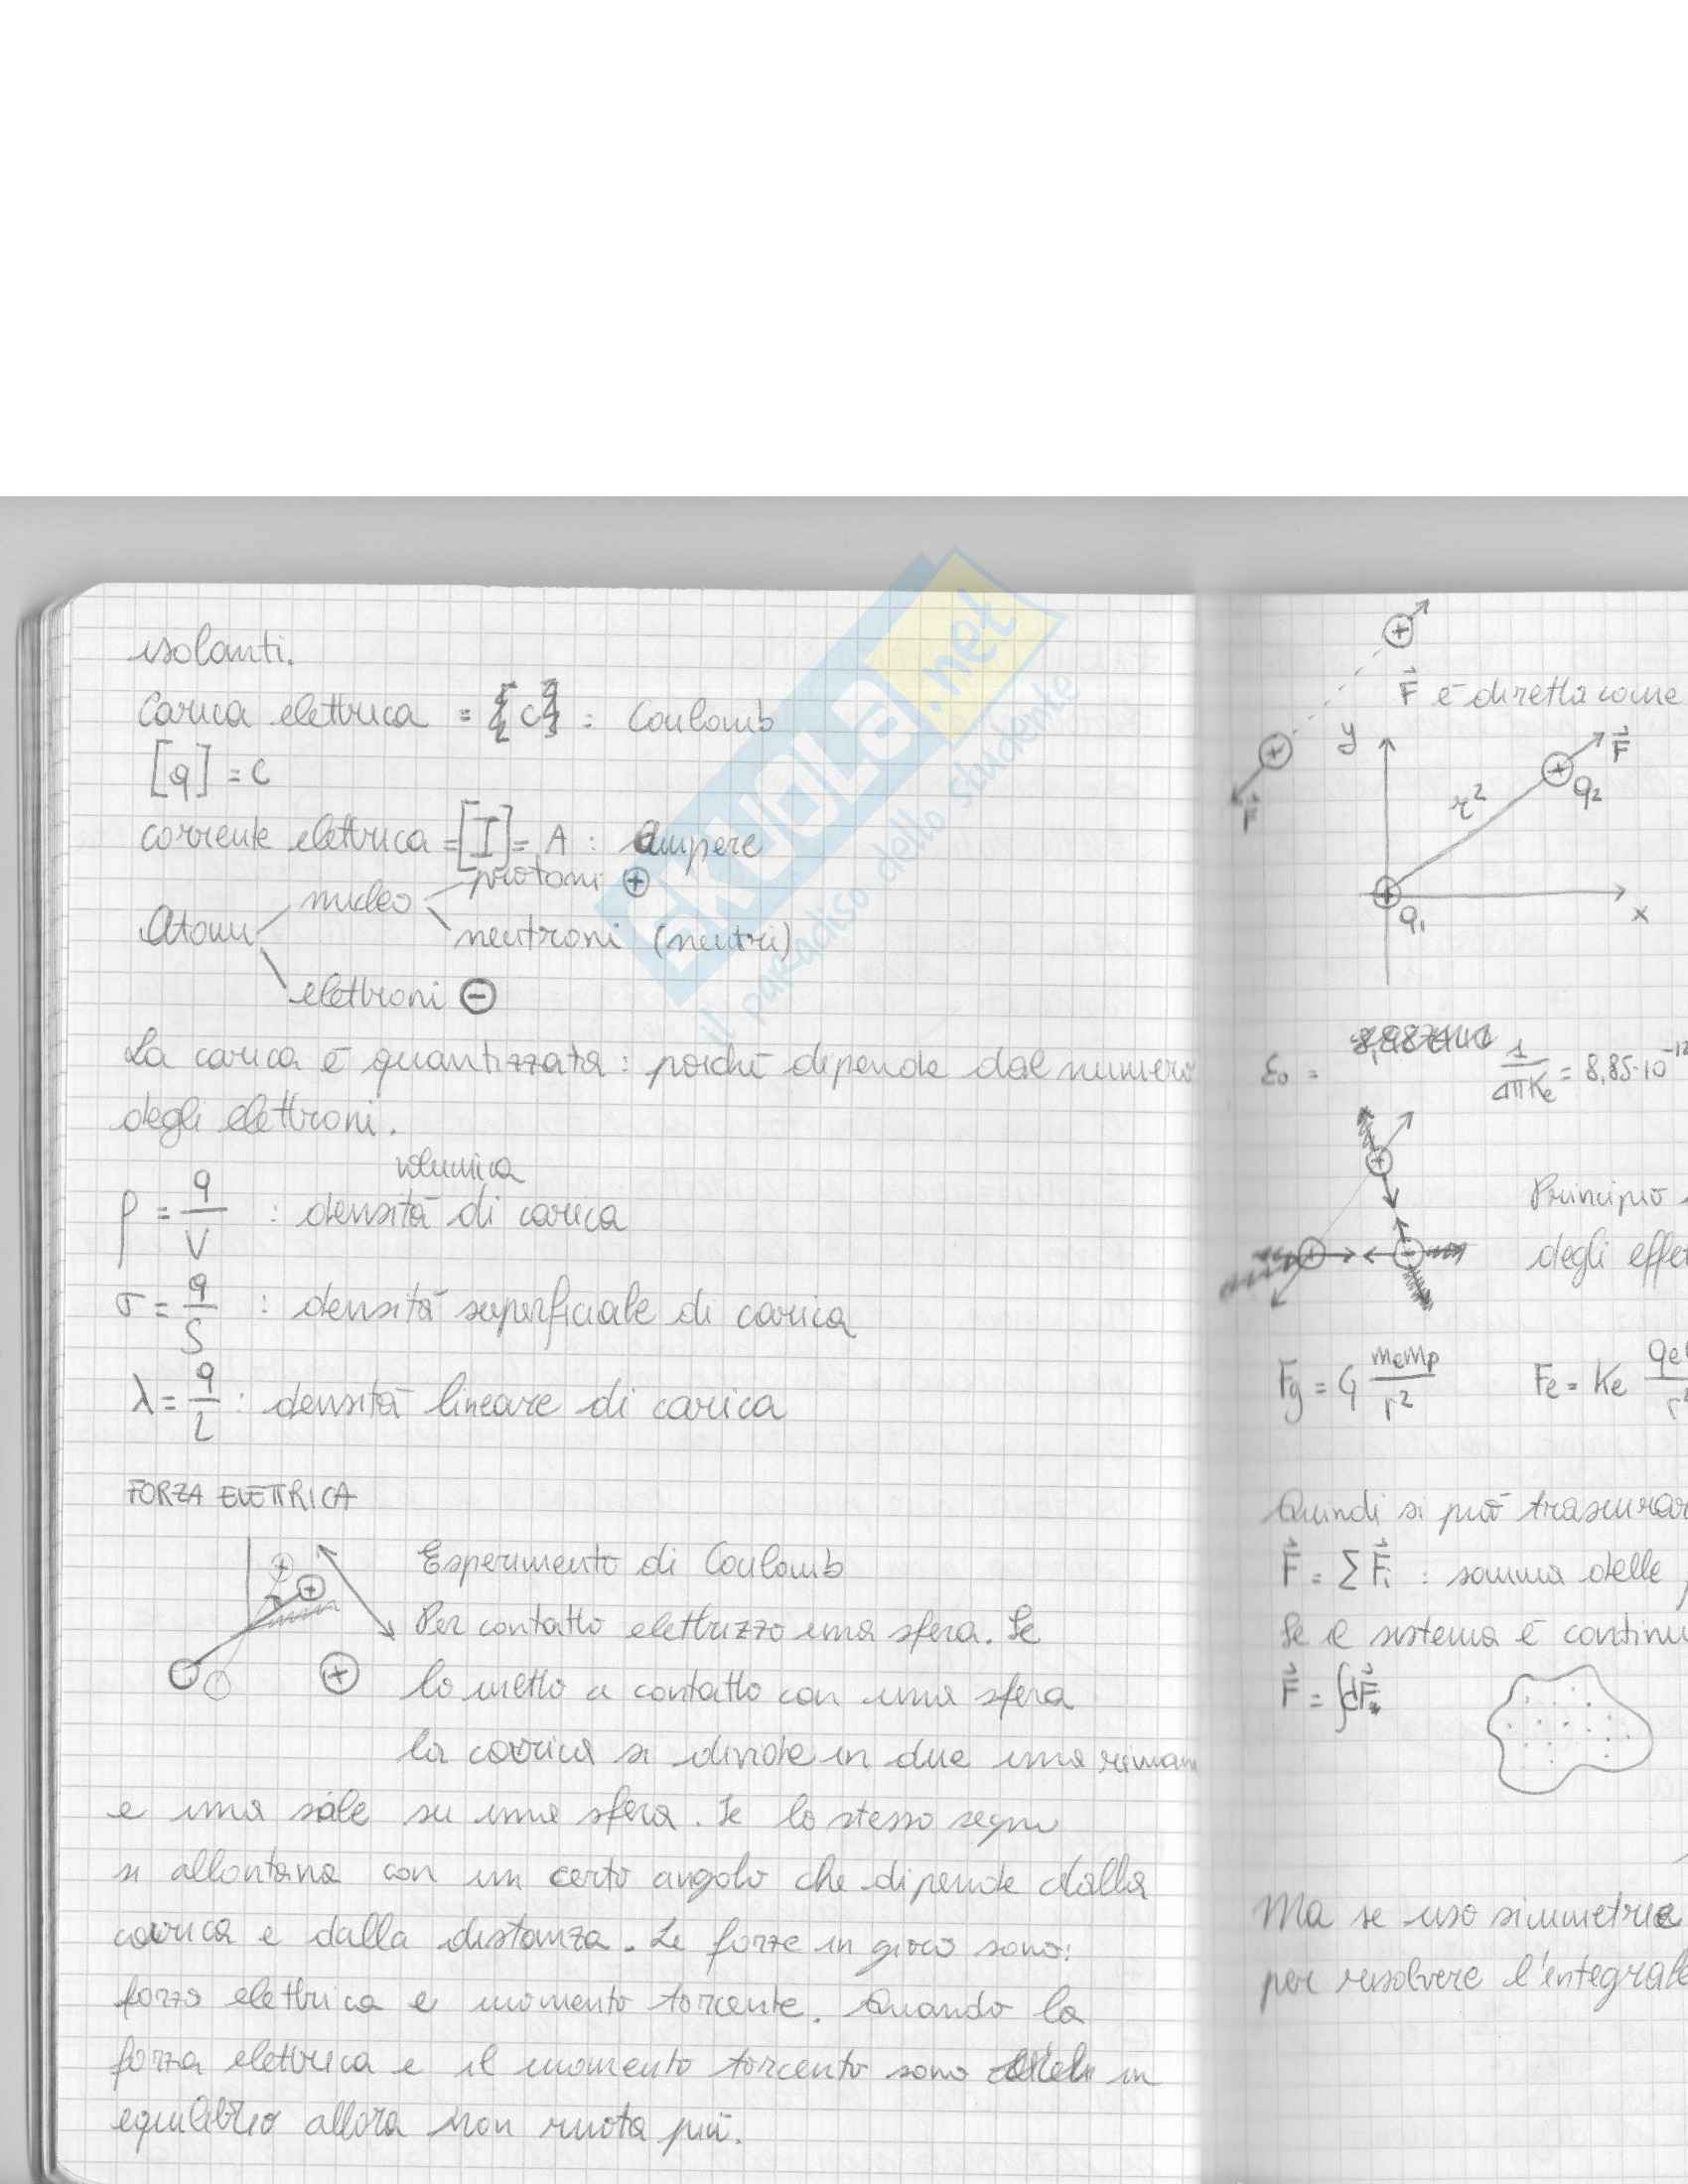 isolanti.
Carica elettrica = [C] = Coulomb
[q] = C
corrente elettrica = [I] = A : Ampere
Atomi nucleo protoni +
neutroni (neutri)
elettroni -
La carica è quantizzata : poiché dipende dal numero
degli elettroni.
volumica
ρ = q/V : densità di carica
σ = q/S : densità superficiale di carica
λ = q/L : densità lineare di carica
FORZA ELETTRICA
Esperimento di Coulomb
Per contatto elettrizzo una sfera. Se
lo metto a contatto con una sfera
la carica si divide in due una riman
e una sale su una sfera. Se lo stesso segno
si allontana con un certo angolo che dipende dalla
carica e dalla distanza. Le forze in gioco sono:
forza elettrica e momento torcente. Quando la
forza elettrica e il momento torcento sono in
equilibrio allora non ruota più.
F⃗ è diretta come
y F⃗
F⃗ r² q₂
q₁ x
ε₀ = 1/4πKe = 8,85·10⁻¹²
Principio
degli effet
Fg = G memp/r² Fe = Ke qe
Quindi si può trascurar
F⃗ = Σ F⃗i : somma delle
Se il sistema è continu
F⃗ = ∫dF⃗
Ma se uso simmetrie
per risolvere l'integrale
SKUOLA.net
il paradiso dello studente